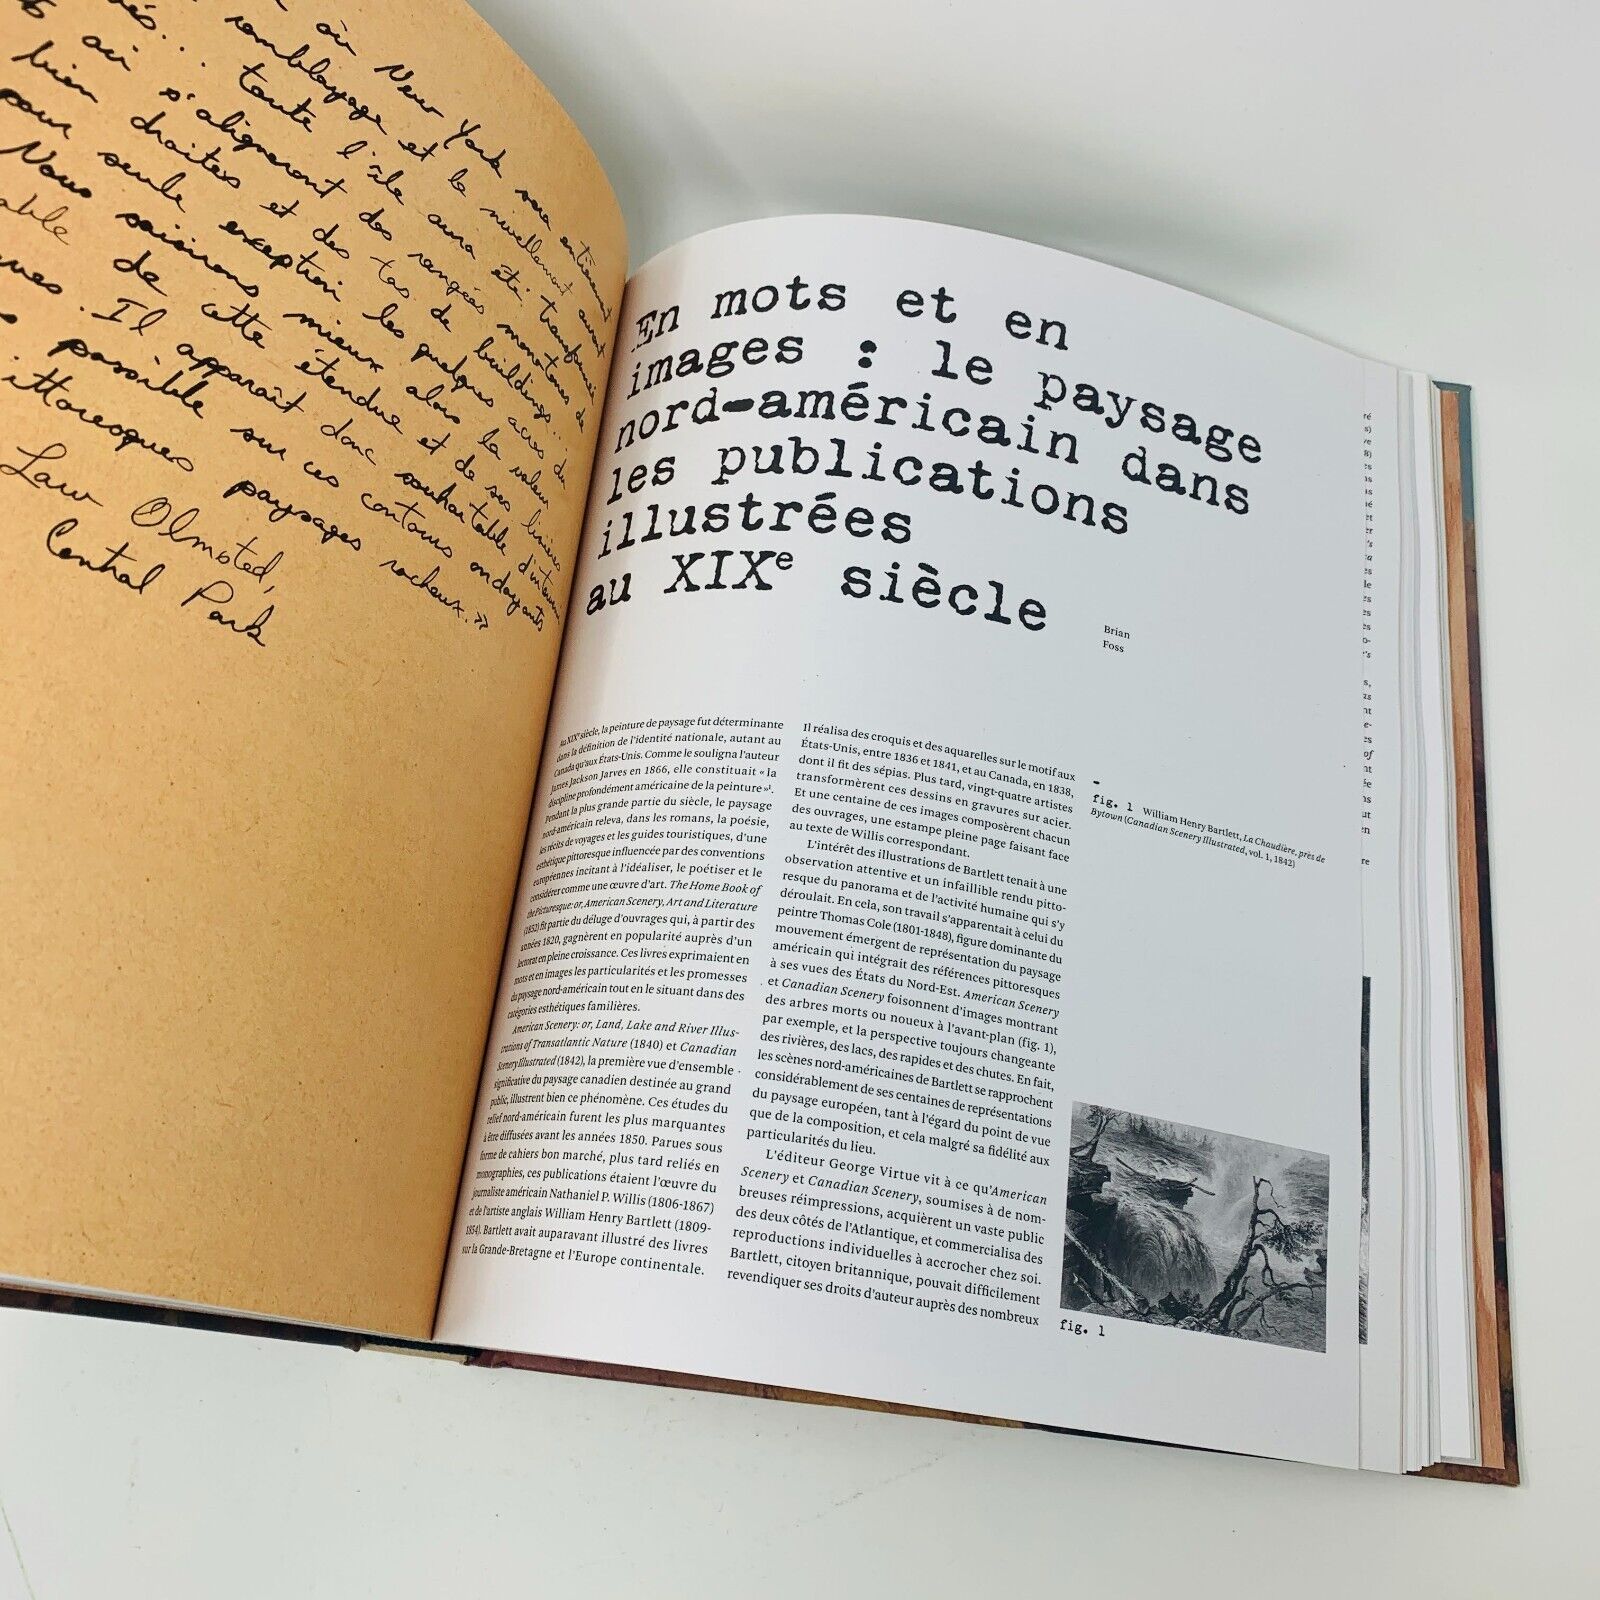 où
New York sera entièrement
remblayage et le nivellement auront
és... toute l'île aura été transformée
où s'aligneront des rangées monotones de
bien droites et des tas de buildings...
pour seule exception les quelques acres du
Nous saisirons mieux alors la valeur
able de cette étendue et de ses
ques. Il apparaît donc souhaitable d'intervenir
possible sur ces contours ondoyants
ittoresques paysages rocheux.»
Law Olmsted,
Central Park
En mots et en
images : le paysage
nord-américain dans
les publications
illustrées
au XIXe siècle
Brian
Foss
Au XIXe siècle, la peinture de paysage fut déterminante
dans la définition de l'identité nationale, autant au
Canada qu'aux États-Unis. Comme le souligna l'auteur
James Jackson Jarves en 1866, elle constituait « la
discipline profondément américaine de la peinture »1.
Pendant la plus grande partie du siècle, le paysage
nord-américain releva, dans les romans, la poésie,
les récits de voyages et les guides touristiques, d'une
esthétique pittoresque influencée par des conventions
européennes incitant à l'idéaliser, le poétiser et le
considérer comme une œuvre d'art. The Home Book of
the Picturesque: or, American Scenery, Art and Literature
(1852) fit partie du déluge d'ouvrages qui, à partir des
années 1820, gagnèrent en popularité auprès d'un
lectorat en pleine croissance. Ces livres exprimaient en
mots et en images les particularités et les promesses
du paysage nord-américain tout en le situant dans des
catégories esthétiques familières.
American Scenery: or, Land, Lake and River Illus-
trations of Transatlantic Nature (1840) et Canadian
Scenery Illustrated (1842), la première vue d'ensemble
significative du paysage canadien destinée au grand
public, illustrent bien ce phénomène. Ces études du
relief nord-américain furent les plus marquantes
à être diffusées avant les années 1850. Parues sous
forme de cahiers bon marché, plus tard reliés en
monographies, ces publications étaient l'œuvre du
journaliste américain Nathaniel P. Willis (1806-1867)
et de l'artiste anglais William Henry Bartlett (1809-
1854). Bartlett avait auparavant illustré des livres
sur la Grande-Bretagne et l'Europe continentale.
Il réalisa des croquis et des aquarelles sur le motif aux
États-Unis, entre 1836 et 1841, et au Canada, en 1838,
dont il fit des sépias. Plus tard, vingt-quatre artistes
transformèrent ces dessins en gravures sur acier.
Et une centaine de ces images composèrent chacun
des ouvrages, une estampe pleine page faisant face
au texte de Willis correspondant.
L'intérêt des illustrations de Bartlett tenait à une
observation attentive et un infaillible rendu pitto-
resque du panorama et de l'activité humaine qui s'y
déroulait. En cela, son travail s'apparentait à celui du
peintre Thomas Cole (1801-1848), figure dominante du
mouvement émergent de représentation du paysage
américain qui intégrait des références pittoresques
à ses vues des États du Nord-Est. American Scenery
et Canadian Scenery foisonnent d'images montrant
des arbres morts ou noueux à l'avant-plan (fig. 1),
par exemple, et la perspective toujours changeante
des rivières, des lacs, des rapides et des chutes. En fait,
les scènes nord-américaines de Bartlett se rapprochent
considérablement de ses centaines de représentations
du paysage européen, tant à l'égard du point de vue
que de la composition, et cela malgré sa fidélité aux
particularités du lieu.
L'éditeur George Virtue vit à ce qu'American
Scenery et Canadian Scenery, soumises à de nom-
breuses réimpressions, acquièrent un vaste public
des deux côtés de l'Atlantique, et commercialisa des
reproductions individuelles à accrocher chez soi.
Bartlett, citoyen britannique, pouvait difficilement
revendiquer ses droits d'auteur auprès des nombreux
-
fig. 1 William Henry Bartlett, La Chaudière, près de
Bytown (Canadian Scenery Illustrated, vol. 1, 1842)
fig. 1